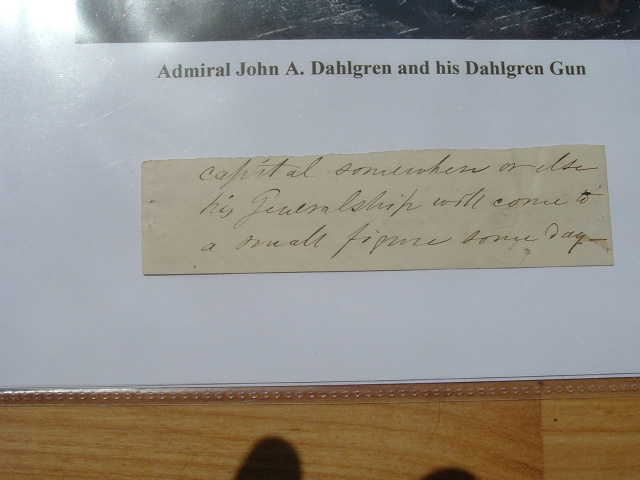 Admiral John A. Dahlgren and his Dahlgren Gun
capital somewhere or else
his Generalship will come to
a small figure some day—